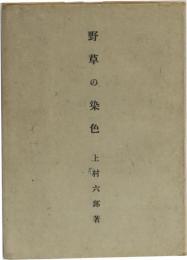 野草の染色
上村六郎著